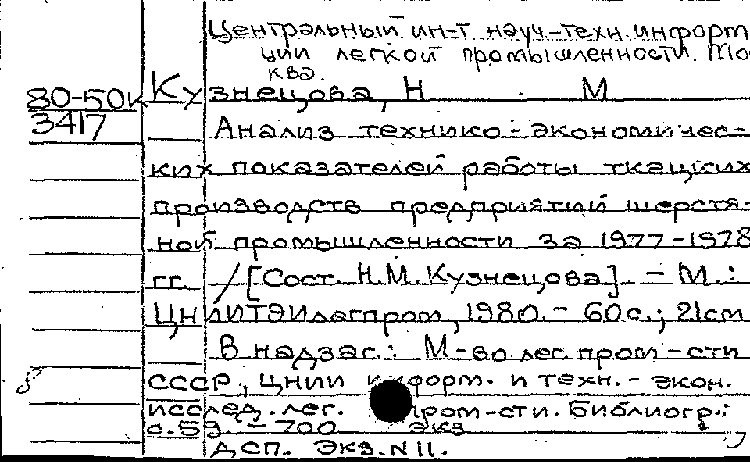 Центральный ин-т науч-техн. информ
ции легкой промышленности. Мо
ква.
80-50к Кузнецова, Н. М
3417 Анализ технико-экономичес-
ких показателей работы ткацких
производств предприятий шерстя-
ной промышленности за 1977-1978
гг. /[Сост. Н.М. Кузнецова]. - М.:
ЦНИИТЭИлегпром, 1980. - 60с.; 21см
В надзаг.: М-во лег. пром-сти
СССР, ЦНИИ информ. и техн.-экон.
исслед. лег. пром-сти. Библиогр.:
с.59. - 700 экз
ДСП. Экз. N 11.